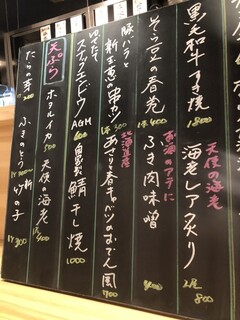 黒毛和牛すき焼 1800
天使の海老
海老レアフライ 2尾 800
そら豆の春巻 1本 400
お酒のアテに
ふき肉味噌 400
豚バラと新玉葱の串カツ 1本 300
北海道産
あさりと春キャベツのおでん風 700
ゆでたて
スナップエンドウ 400
自家製 鯖干し焼 1000
天ぷら
ホタルイカ 500
天使の海老 1尾 400
たらの芽 300
ふきのとう
竹の子